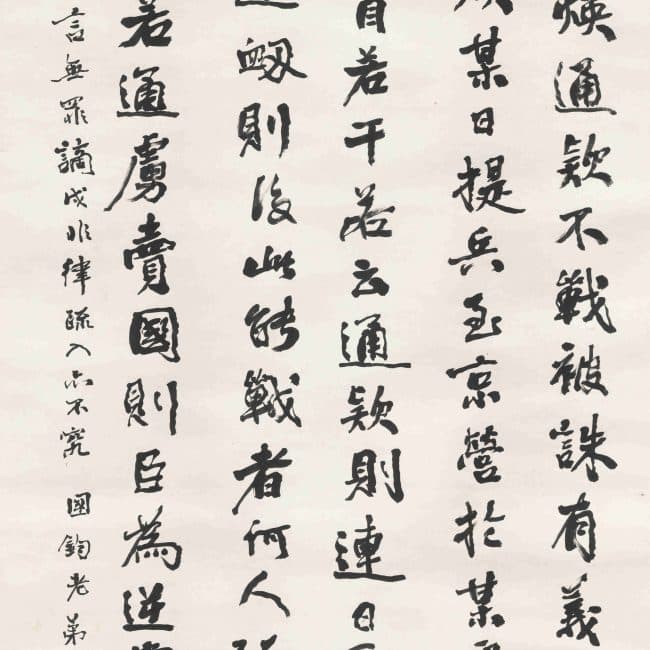 煥通欵不戰被誅有義
某日提兵至京營於某
自若干若云通欵則連日
衂則後此能戰者何人
若通虜賣國則臣為逆
言無罪謫戍非律疏入亦不究 國鈞老弟